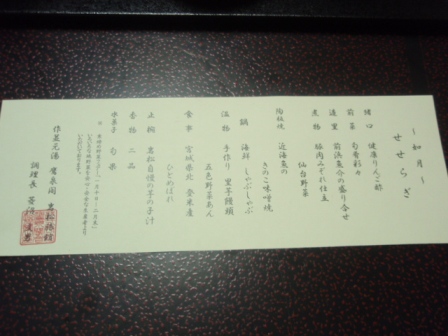 ～如月～
せせらぎ
猪口　健康りんご酢
前菜　旬香彩々
造里　前浜魚介の盛り合せ
煮物　鶏肉みぞれ仕立
仙台野菜
陶板焼　近海魚の
きのこ味噌焼
鍋　海鮮しゃぶしゃぶ
温物　手作り里芋饅頭
五色野菜あん
食事　宮城県北登米産
ひとめぼれ
止椀　岩松自慢の芋の子汁
香物　二品
水菓子　旬菓
作並元湯　鷹泉閣　岩松旅館
調理長